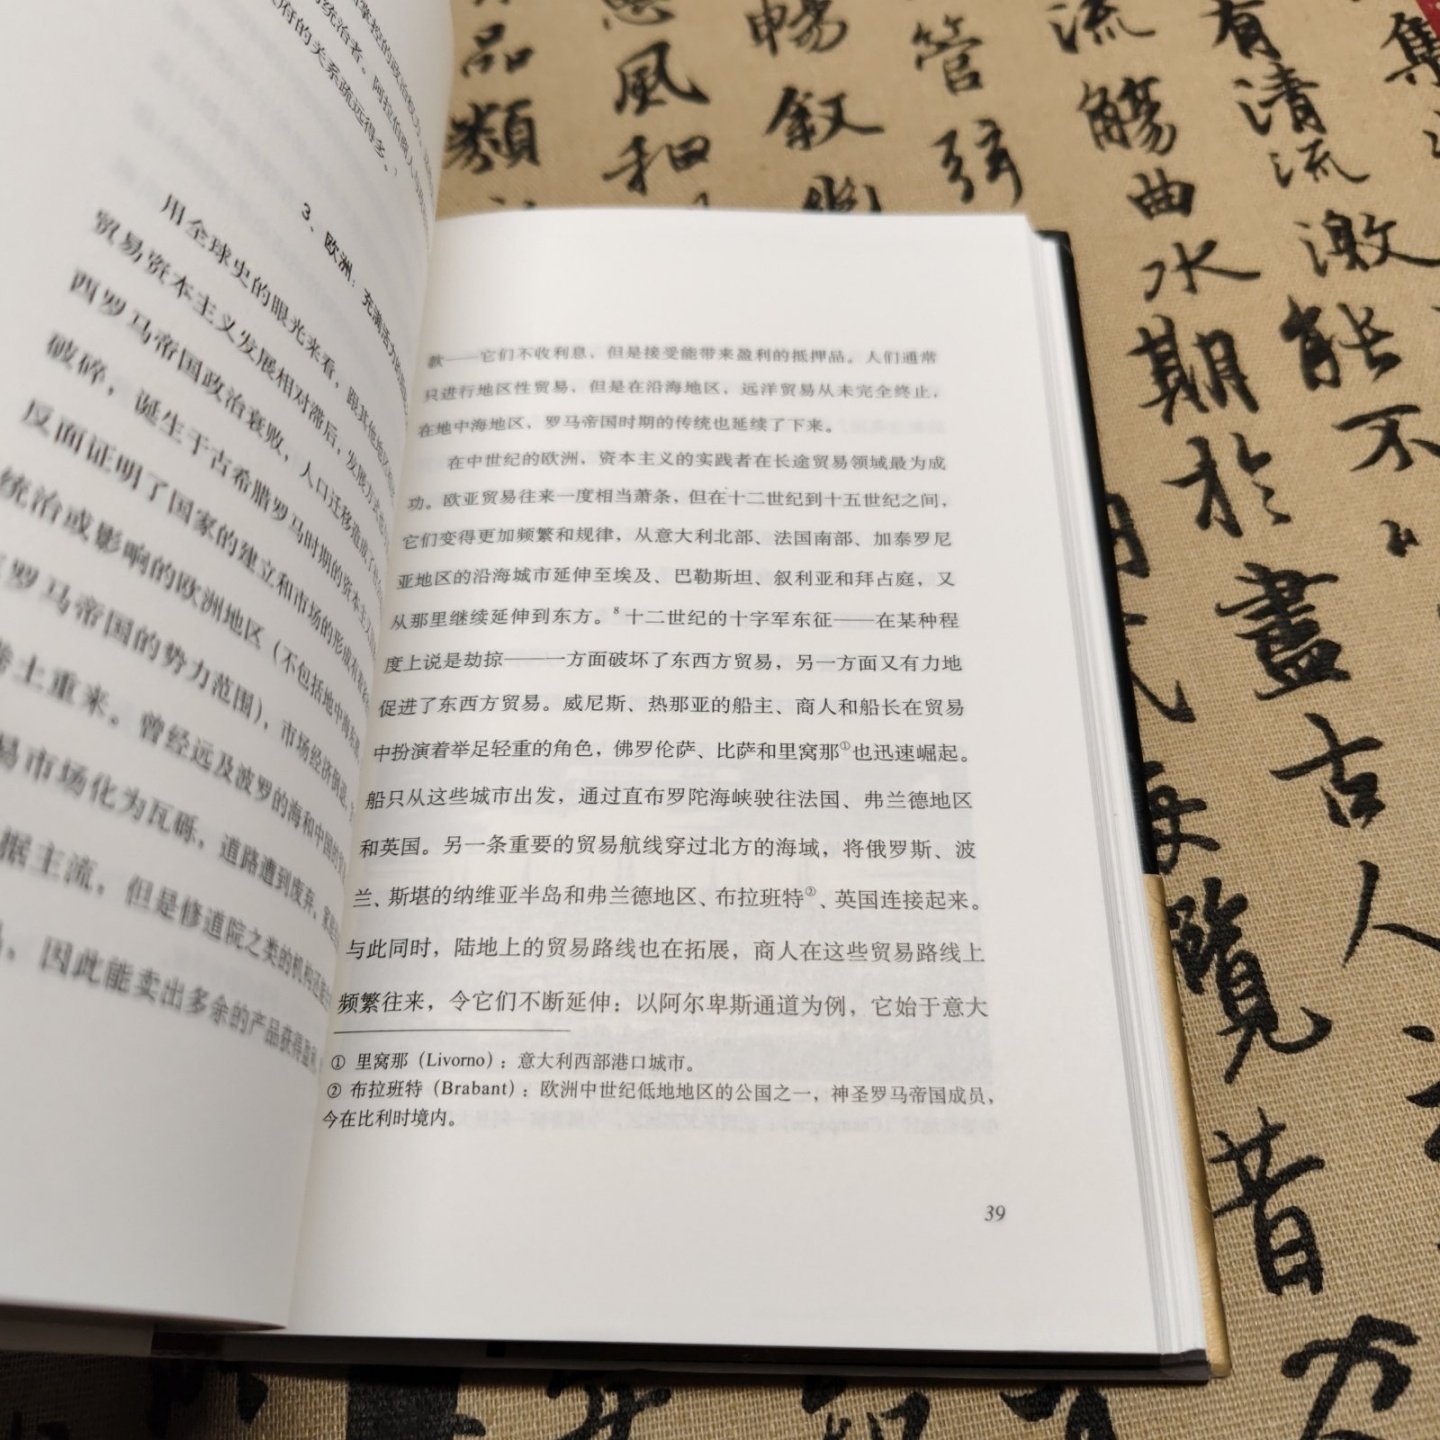 掌控的政治权力
统治者。阿拉伯商人与
府的关系疏远得多。7
3、欧洲：充满活力的
用全球史的眼光来看，跟其他地区
贸易资本主义发展相对滞后，发展方式也
西罗马帝国政治衰败，人口迁移造成了
破碎，诞生于古希腊罗马时期的资本主
反面证明了国家的建立和市场的形成有着
统治或影响的欧洲地区（不包括地中海
罗马帝国的势力范围），市场经济倒退，
土重来。曾经远及波罗的海和中国的
易市场化为瓦砾，道路遭到废弃，
据主流，但是修道院之类的机构还
，因此能卖出多余的产品获得盈利
款——它们不收利息，但是接受能带来盈利的抵押品。人们通常
只进行地区性贸易，但是在沿海地区，远洋贸易从未完全终止，
在地中海地区，罗马帝国时期的传统也延续了下来。
在中世纪的欧洲，资本主义的实践者在长途贸易领域最为成
功。欧亚贸易往来一度相当萧条，但在十二世纪到十五世纪之间，
它们变得更加频繁和规律，从意大利北部、法国南部、加泰罗尼
亚地区的沿海城市延伸至埃及、巴勒斯坦、叙利亚和拜占庭，又
从那里继续延伸到东方。8 十二世纪的十字军东征——在某种程
度上说是劫掠——一方面破坏了东西方贸易，另一方面又有力地
促进了东西方贸易。威尼斯、热那亚的船主、商人和船长在贸易
中扮演着举足轻重的角色，佛罗伦萨、比萨和里窝那①也迅速崛起。
船只从这些城市出发，通过直布罗陀海峡驶往法国、弗兰德地区
和英国。另一条重要的贸易航线穿过北方的海域，将俄罗斯、波
兰、斯堪的纳维亚半岛和弗兰德地区、布拉班特②、英国连接起来。
与此同时，陆地上的贸易路线也在拓展，商人在这些贸易路线上
频繁往来，令它们不断延伸：以阿尔卑斯通道为例，它始于意大
① 里窝那（Livorno）：意大利西部港口城市。
② 布拉班特（Brabant）：欧洲中世纪低地地区的公国之一，神圣罗马帝国成员，
今在比利时境内。
39
集
有清流激
流觴曲水
管弦
暢敘
風和
品類
期於盡古人
能不
覽昔